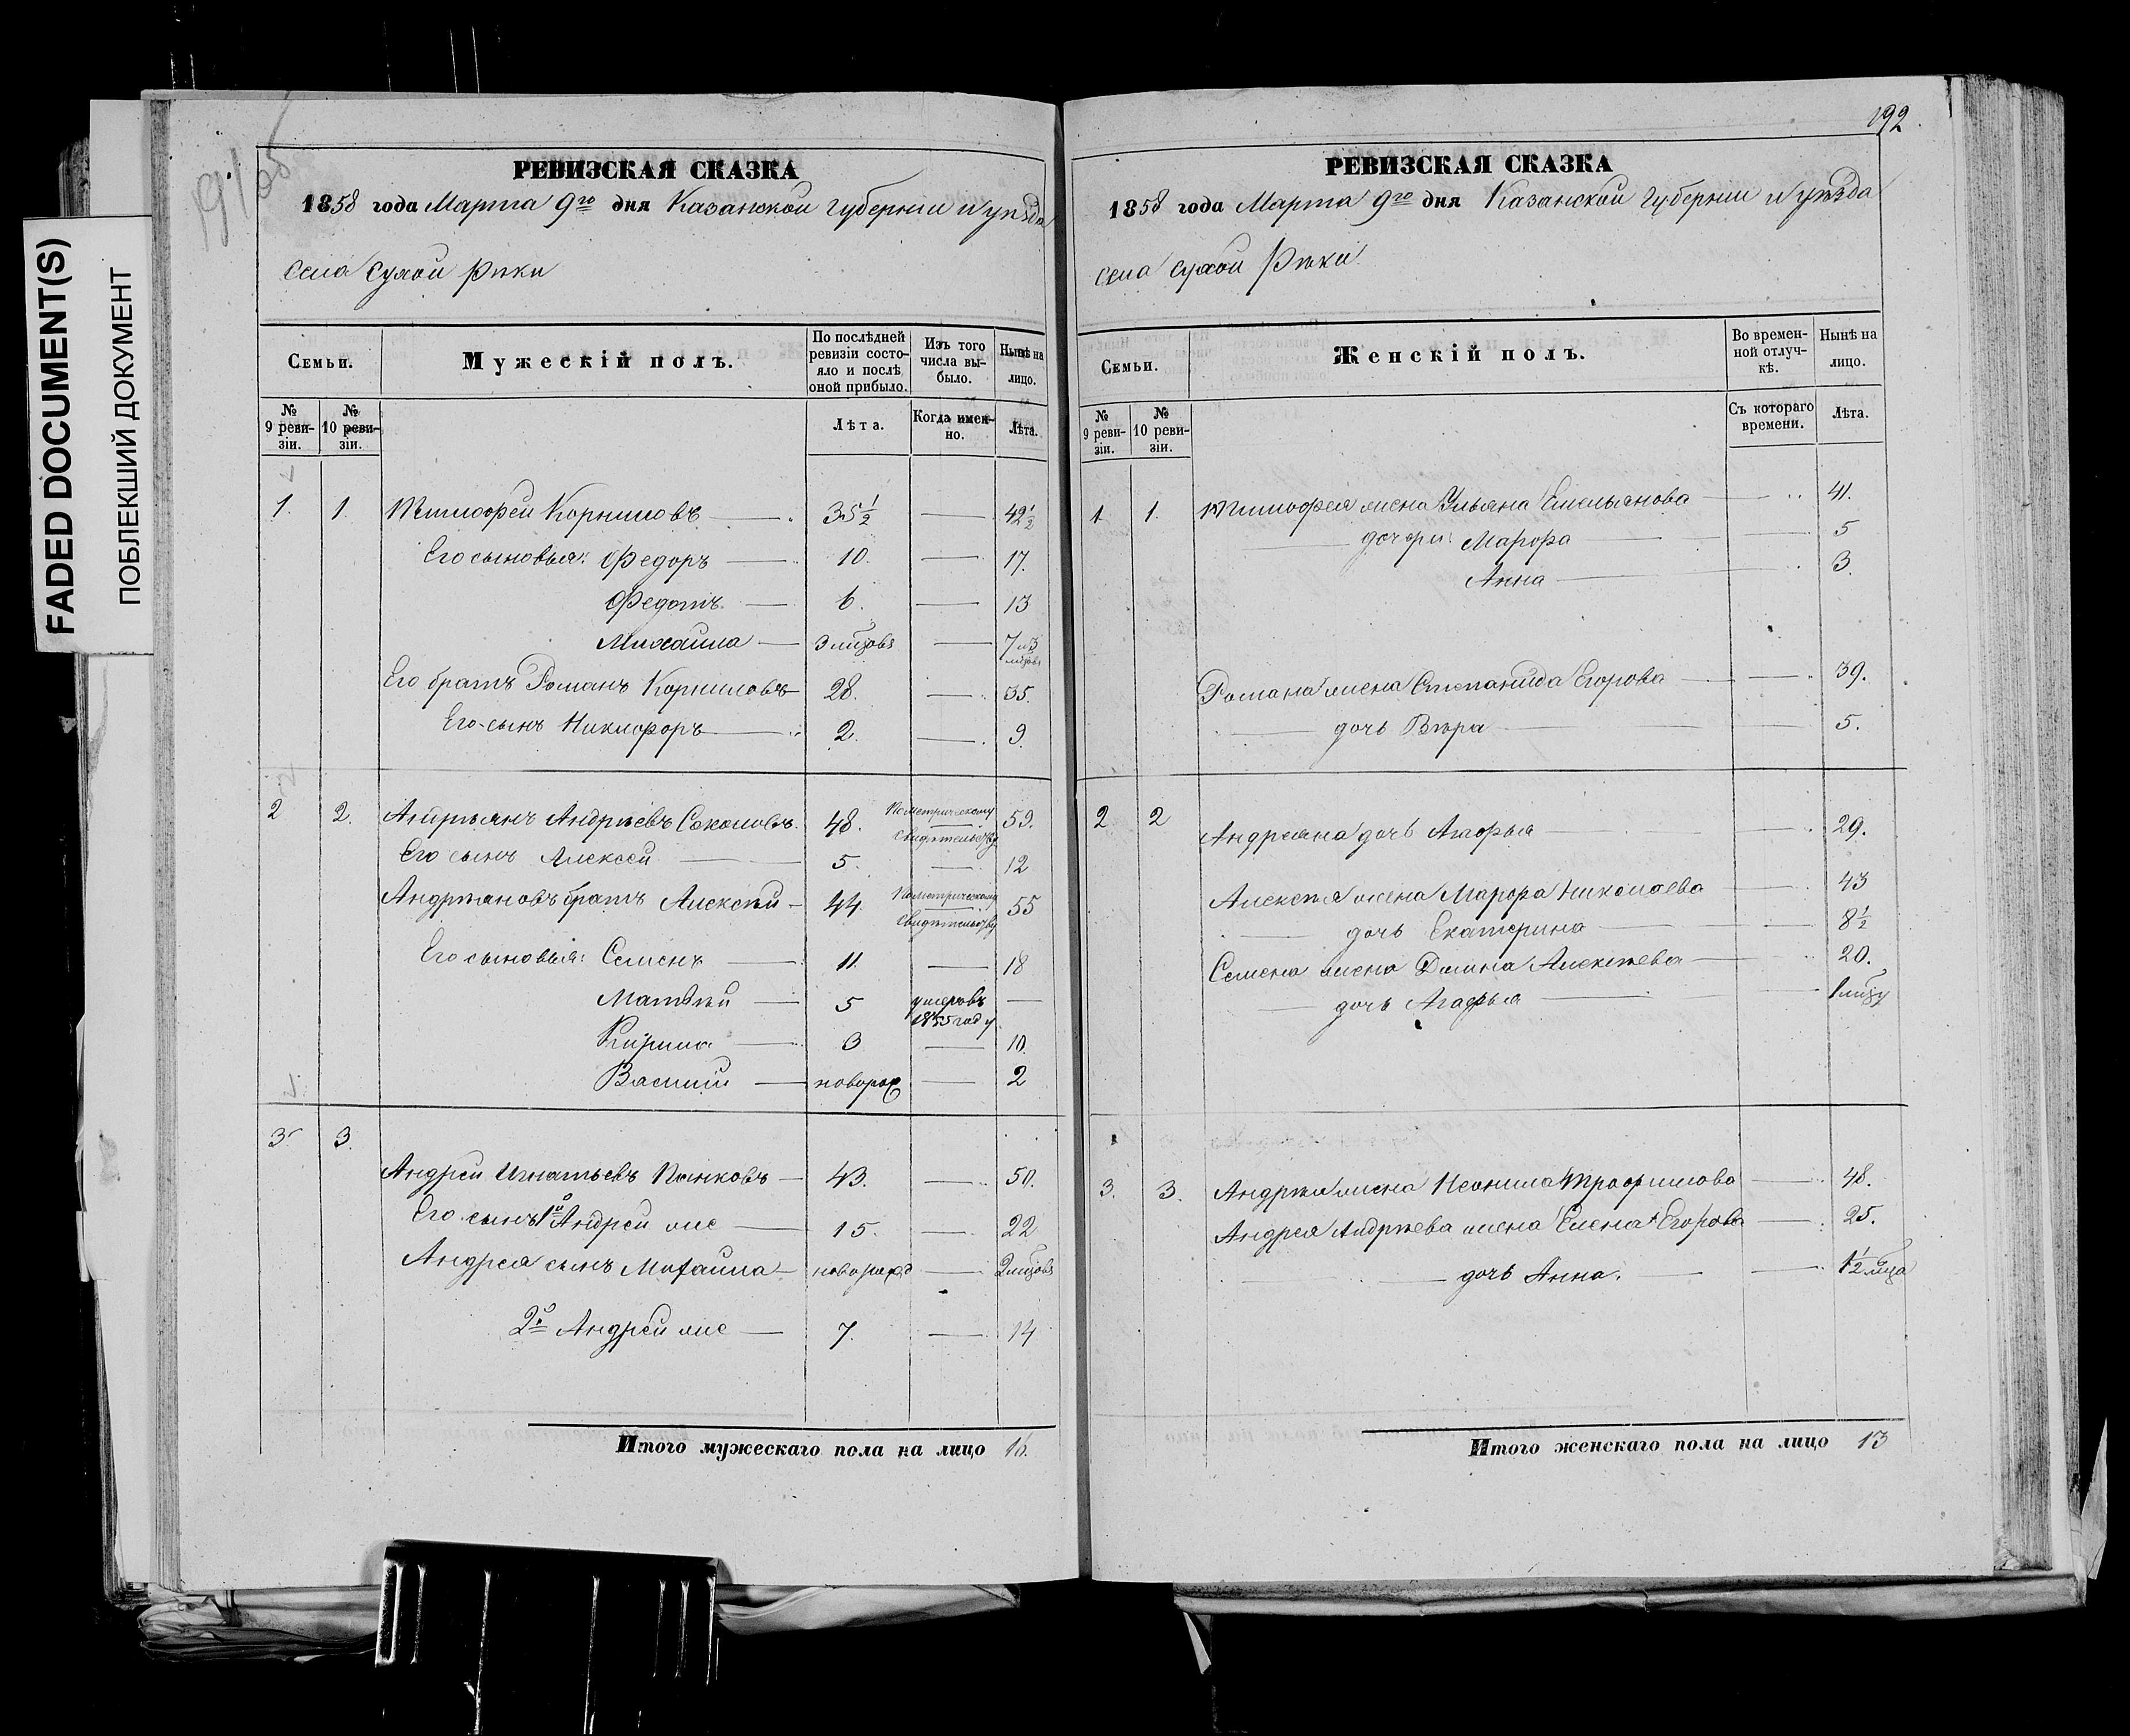 FADED DOCUMENT(S)
ПОБЛЕКШИЙ ДОКУМЕНТ
РЕВИЗСКАЯ СКАЗКА
1858 года Марта 9го дня Казанской губернии и уѣзда
села Сухой Рѣки
Семьи.
Мужескій полъ.
По послѣдней ревизіи состояло и послѣ оной прибыло.
Изъ того числа выбыло.
Нынѣ на лицо.
№ 9 ревизіи.
№ 10 ревизіи.
Лѣта.
Когда именно.
Лѣта.
1. 1. Тимофей Корниловъ 35½ — 42½
Его сыновья: Федоръ 10. — 17.
Федотъ 6. — 13
Михайла 3 мцовъ — 7 и 3 мцовъ
Его братъ Романъ Корниловъ 28. — 35.
Его сынъ Никифоръ 2. — 9
2 2. Андреянъ Андреевъ Соколовъ 48. По метрическому свидѣтельству 59.
Его сынъ Алексей 5. — 12
Андреяновъ братъ Алексѣй 44. По метрическому свидѣтельству 55
Его сыновья: Семенъ 11. — 18
Матвѣй 5 умеръ въ 1855 году —
Кирила 3 — 10.
Василий новорож — 2
3. 3.
Андрей Игнатьевъ Панковъ 43. — 50.
Его сынъ 1й Андрей же 15. — 22
Андрея сынъ Михаила новорожд — 2 мцовъ
2й Андрей же 7. — 14
Итого мужескаго пола на лицо 16.
192
РЕВИЗСКАЯ СКАЗКА
1858 года Марта 9го дня Казанской губернии и уѣзда
села Сухой Рѣки
Семьи.
Женскій полъ.
Во временной отлучкѣ.
Нынѣ на лицо.
№ 9 ревизіи.
№ 10 ревизіи.
Съ котораго времени.
Лѣта.
1. 1. Тимофея жена Ульяна Емельянова — 41.
дочери: Марфа — 5
Анна — 3.
Романа жена Степанида Егорова — 39.
дочь Вѣра — 5.
2 2 Андреяна дочь — 29.
Алексѣя жена Марфа Николаева — 43
дочь Екатерина — 8½
Семена жена Алексѣева — 20.
дочь Агафья — 1 мцу
3. 3. Андрея жена Неонила Трофимова — 48.
Андрея Андреева жена Елена Егорова — 25.
дочь Анна. — 1½ мца
Итого женскаго пола на лицо 13